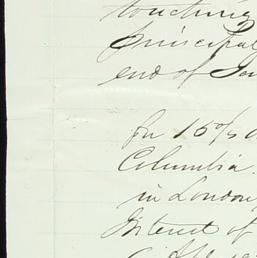 touching
Principal
end of
for 15%
Columbia
in London
Interest of